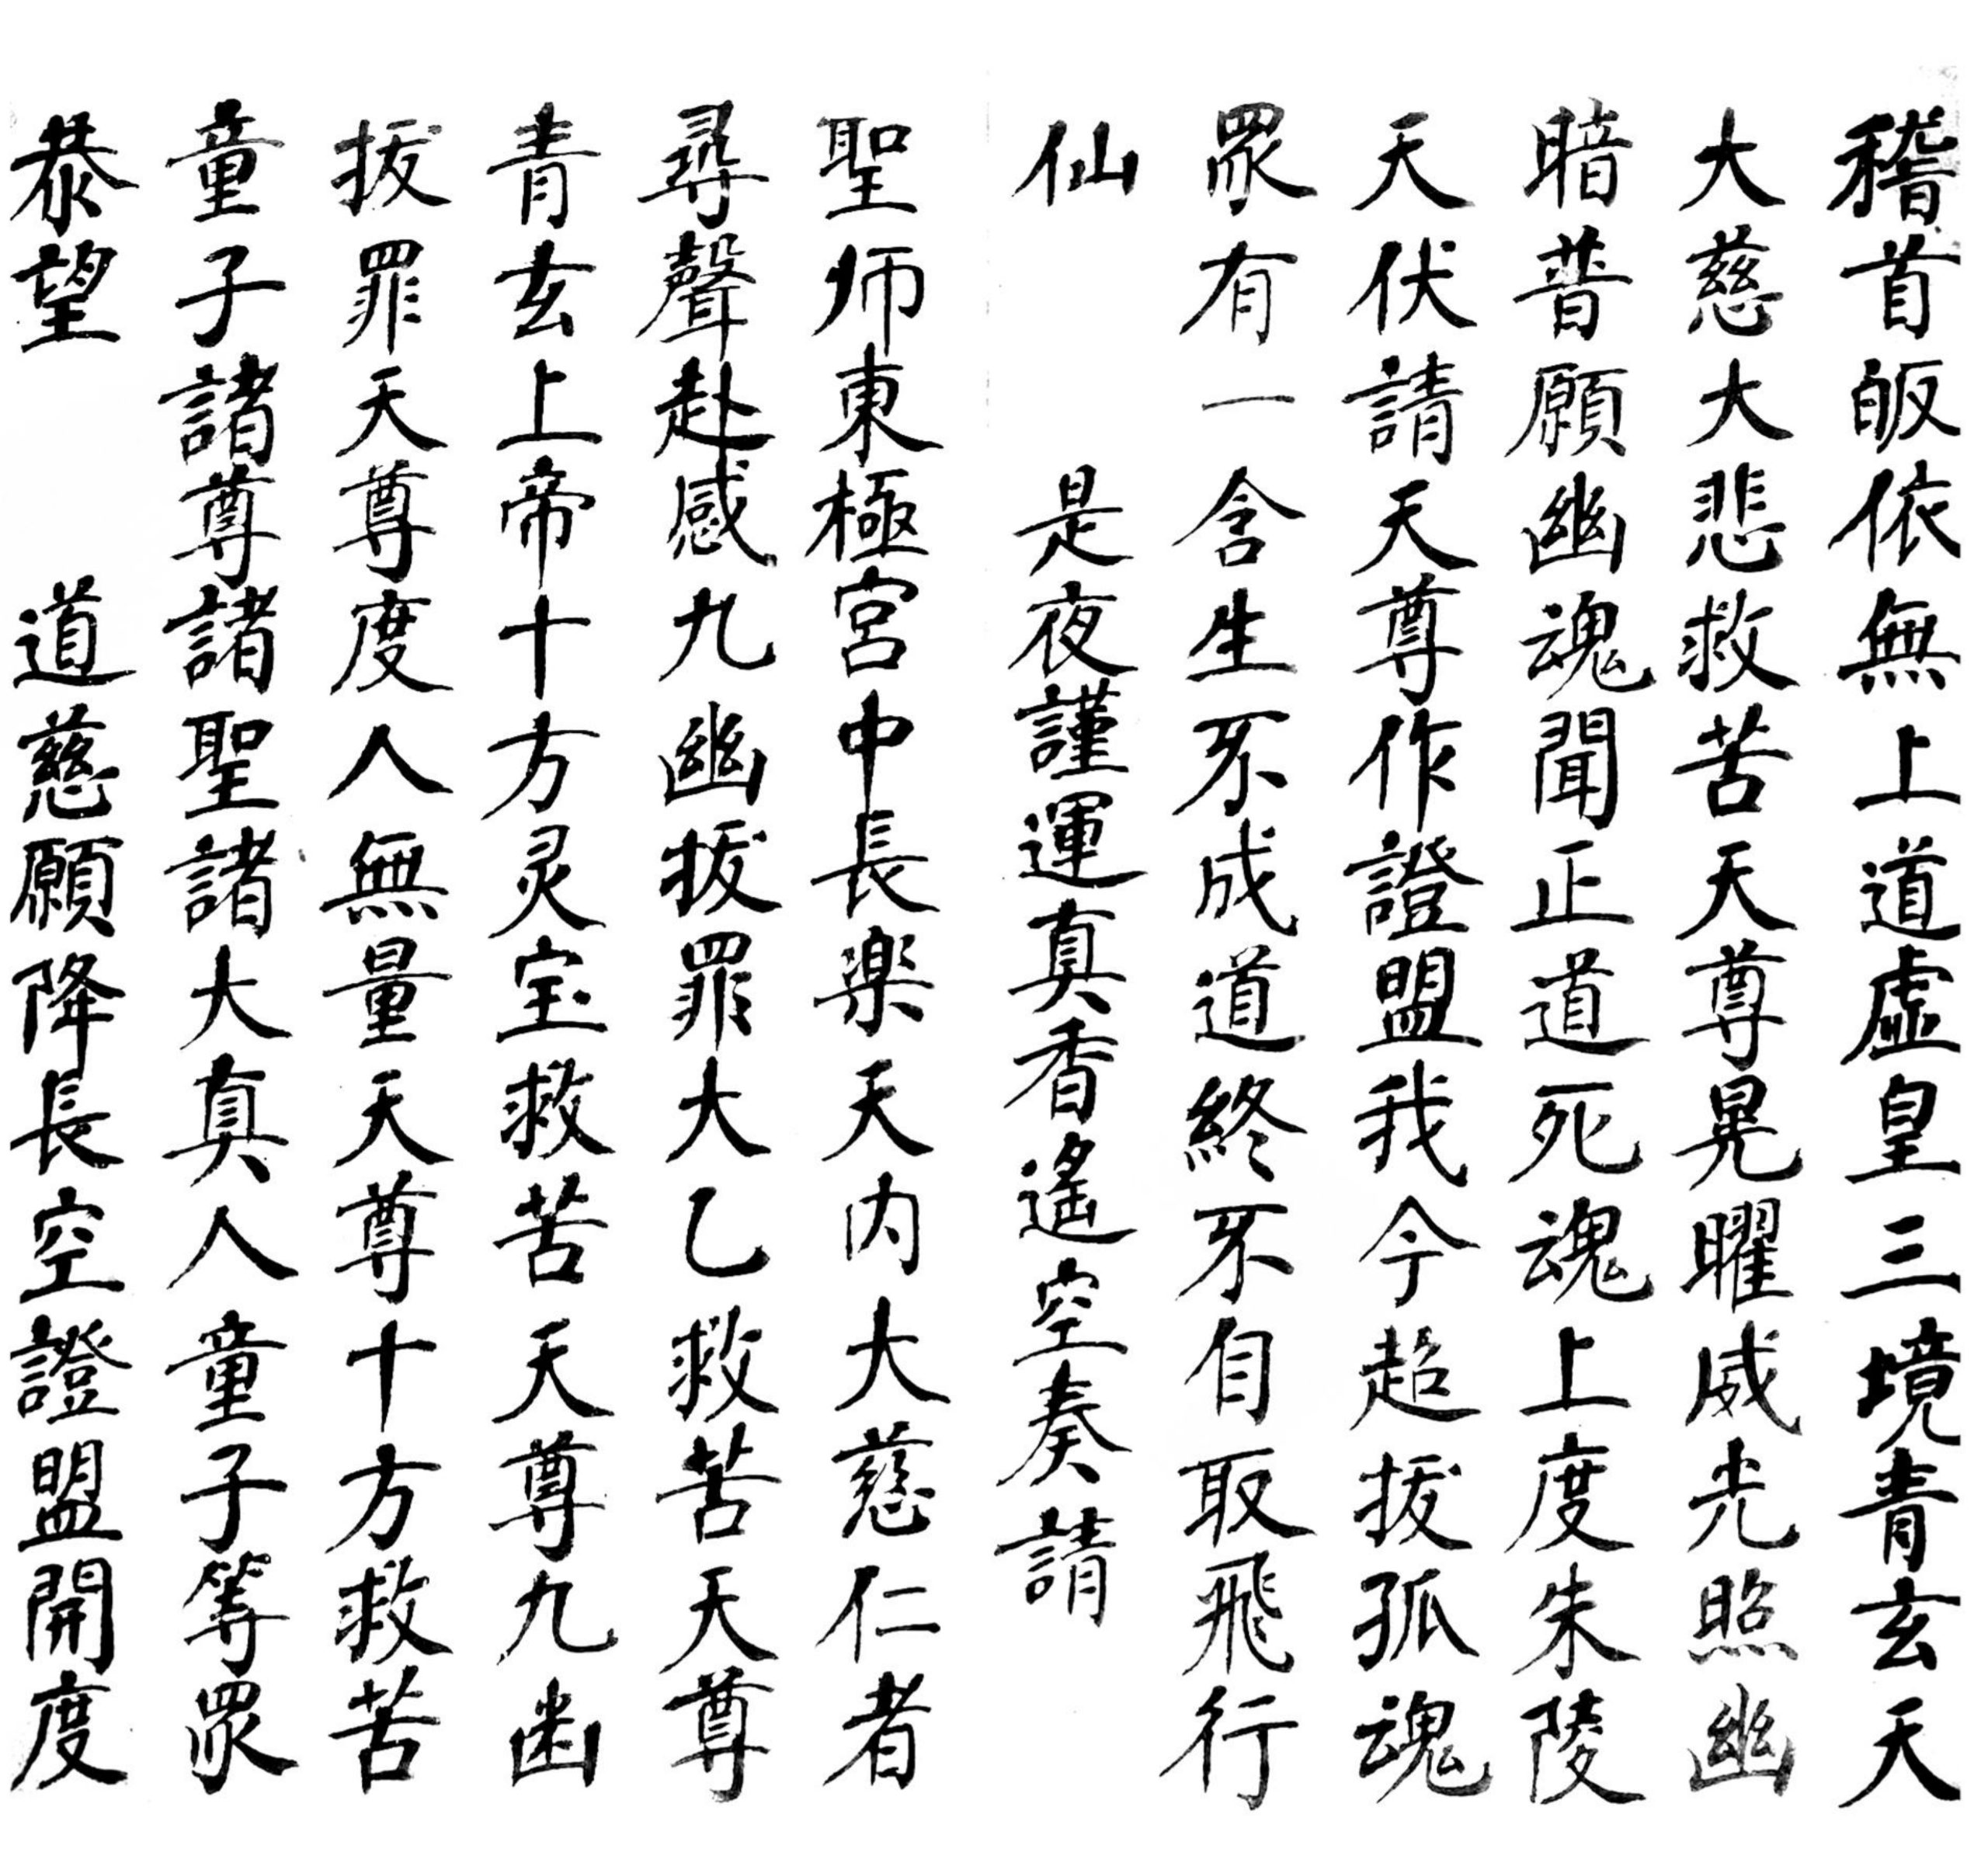 稽首皈依無上道虛皇三境青玄天
大慈大悲救苦天尊晃曜威光照幽
暗普願幽魂聞正道死魂上度朱陵
天伏請天尊作證盟我今超拔孤魂
眾有一含生不成道終不自取飛行
仙 是夜謹運真香遙空奏請
聖师東極宮中長楽天內大慈仁者
尋聲赴感九幽拔罪大乙救苦天尊
青玄上帝十方灵宝救苦天尊九幽
拔罪天尊度人無量天尊十方救苦
童子諸尊諸聖諸大真人童子等眾
恭望 道慈願降長空證盟開度